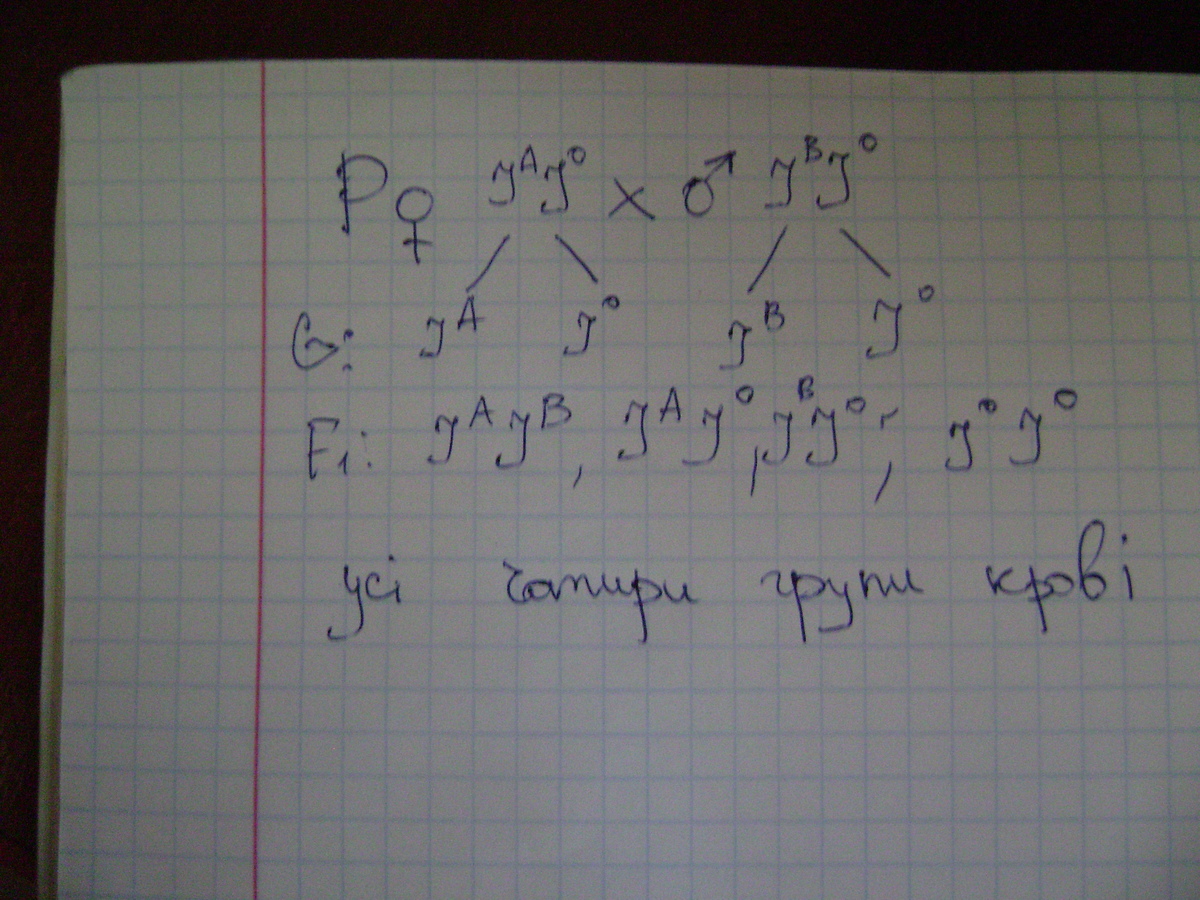 P ♀ J^A J^o × ♂ J^B J^o
G: J^A J^o J^B J^o
F₁: J^A J^B, J^A J^o, J^B J^o, J^o J^o
усі чотири групи крові